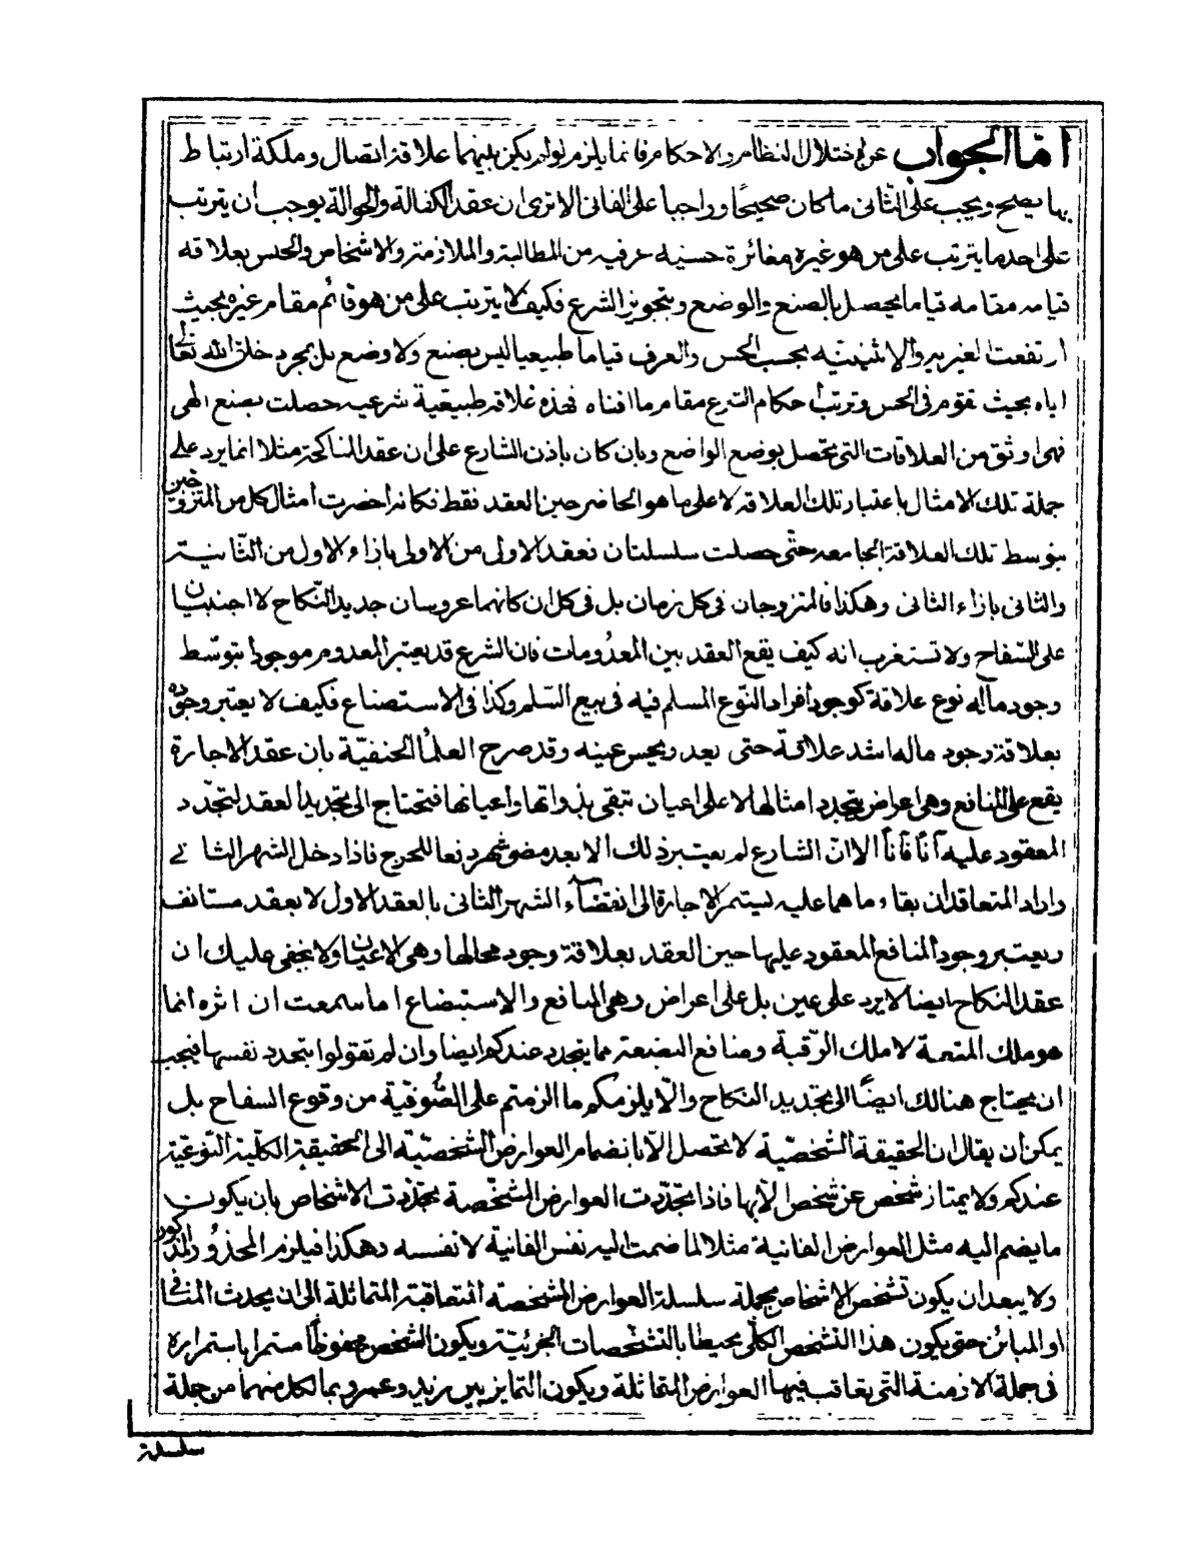 اما الجواب عن اختلال النظام والاحكام فانما يلزم لو لم يكن بينهما علاقة اتصال وملكة ارتباط
بها يصح ويجب على الثانى ما كان صحيحًا وواجبا على الفانى الا ترى ان عقد الكفالة والحوالة يوجب ان يترتب
على احد ما يترتب على من هو غيره مغائرة حسنيه عرفيه من المطالبة والملازمة والاشخاص والحبس بعلاقة
قيامه مقامه قياما يحصل بالصنع والوضع وبتجويز الشرع فكيف لا يترتب على من هو قائم مقام غيره بحيث
ارتفعت الغيرية والاثنينيه بحسب الحس والعرف قياما طبيعيا ليس بصنع ولا وضع بل بمجرد خلق الله تعالى
اياه بحيث تقوم فى الحس وترتب احكام الشرع مقام ما افناه فهذه علاقة طبيعية شرعيه حصلت بصنع الهى
فهى اوثق من العلاقات التى تحصل بوضع الواضع وبان كان باذن الشارع على ان عقد المناكحة مثلا انما يرد على
جملة تلك الامثال باعتبار تلك العلاقة لا على ما هو الحاضر حين العقد فقط فكانه احضرت امثال كل من المتزوجين
بتوسط تلك العلاقة الجامعه حتى حصلت سلسلتان فعقد الاولى من الاولى بازاء الاول من الثانية
والثانى بازاء الثانى وهكذا فالمتزوجان فى كل زمان بل فى كل ان كانهما عروسان جديد النكاح لا اجنبيان
على السفاح ولا تستغرب انه كيف يقع العقد بين المعدومات فان الشرع قد يعتبر المعدوم موجودا بتوسط
وجود ما له نوع علاقة كوجود افراد النوع المسلم فيه فى بيع السلم وكذا فى الاستصناع فكيف لا يعتبر وجوده
بعلاقة وجود ماله اشد علاقة حتى يعد ويحس عينه وقد صرح العلما الحنفية بان عقد الاجارة
يقع على المنافع وهى اعراض يتجدد امثالها لا على اعيان تبقى بذواتها واعيانها فتحتاج الى تجديد العقد لتجدد
المعقود عليه آنًا فآنًا الا ان الشارع لم يعتبر ذلك الا بعد مضى شهر دفعا للحرج فاذا دخل الشهر الثانى
واراد المتعاقدان بقاء ما هما عليه يستمر الاجارة الى انقضاء الشهر الثانى بالعقد الاول لا بعقد مستانف
ويعتبر وجود المنافع المعقود عليها حين العقد بعلاقة وجود محالها وهى الاعيان ولا يخفى عليك ان
عقد النكاح ايضا لا يرد على عين بل على اعراض وهى المنافع والاستبضاع اما سمعت ان اثره انما
هو ملك المتعة لا ملك الرقبة ومنافع البضعة مما يتجدد عندكم ايضا وان لم تقولوا بتجدد نفسها فيجب
ان يحتاج هنالك ايضًا الى تجديد النكاح والا يلزمكم ما الزمتم على الصوفية من وقوع السفاح بل
يمكن ان يقال ان الحقيقة الشخصية لا تحصل الا بانضمام العوارض الشخصية الى الحقيقة الكلية النوعية
عندكم ولا يمتاز شخص عن شخص الا بها فاذا تجددت العوارض المشخصة تجددت الاشخاص بان يكون
ما يضم اليه مثل العوارض الفانية مثلا لما ضمت اليه نفس الفانية لا نفسه وهكذا فيلزم المحذور المذكور
ولا يبعد ان يكون تشخص الاشخاص بجملة سلسلة العوارض المشخصة المتعاقبة المتماثلة الى ان يحدث المنافى
او المبائن حتى يكون هذا التشخص الكلى محيطا بالتشخصات الجزئية ويكون الشخص محفوظًا مستمرا باستمراره
فى جملة الازمنة التى يعاقب فيها العوارض المتماثلة ويكون التمايز بين زيد وعمرو بما لكل منهما من جملة
سلسلة